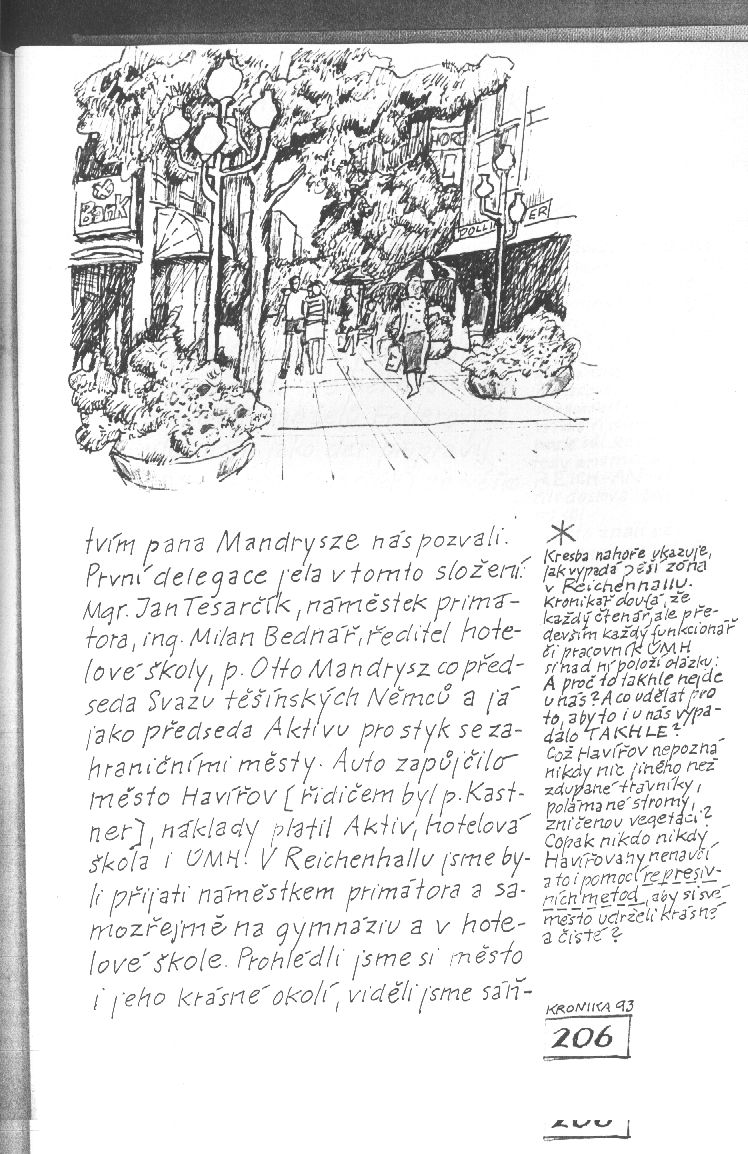 Bank
HOR
POLLI
ER
tvím pana Mandrysze nás pozvali.
První delegace jela v tomto složení:
Mgr. Jan Tesarčík, náměstek primá-
tora, ing. Milan Bednář, ředitel hote-
lové školy, p. Otto Mandrysz co před-
seda Svazu těšínských Němců a já
jako předseda Aktivu pro styk se za-
hraničními městy. Auto zapůjčilo
město Havířov [řidičem byl p. Kast-
ner], náklady platil Aktiv, hotelová
škola i ÚMH! V Reichenhallu jsme by-
li přijati náměstkem primátora a sa-
mozřejmě na gymnáziu a v hote-
lové škole. Prohlédli jsme si město
i jeho krásné okolí, viděli jsme sáň-
*
Kresba nahoře ukazuje,
jak vypadá pěší zóna
v Reichenhallu.
Kronikář doufá, že
každý čtenář, ale pře-
devším každý funkcionář
či pracovník ÚMH
si nad ní položí otázku:
A proč to takhle nejde
u nás? A co udělat pro
to, aby to i u nás vypa-
dalo TAKHLE?
Což Havířov nepozná
nikdy nic jiného než
zdupané trávníky,
polámané stromy,
zničenou vegetaci?
Copak nikdo nikdy
Havířovany nenaučí
a to i pomocí represiv-
ních metod, aby si své
město udrželi krásné
a čisté?
KRONIKA 93
206